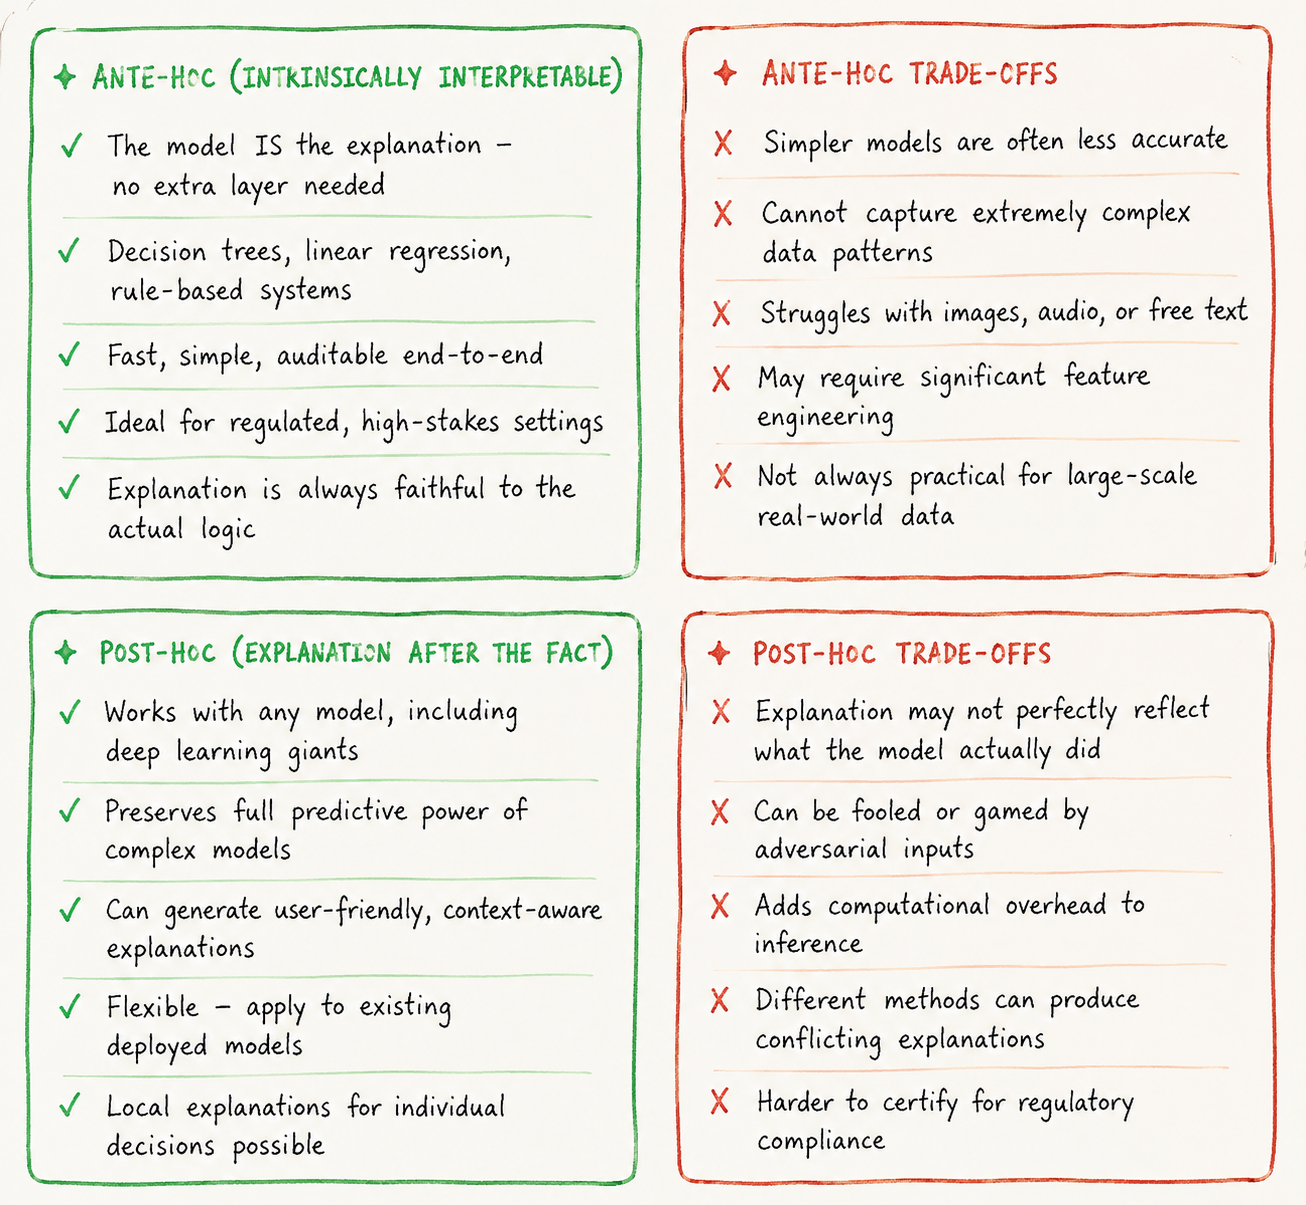 ANTE-HOC (INTRINSICALLY INTERPRETABLE)
✓ The model IS the explanation –
no extra layer needed
✓ Decision trees, linear regression,
rule-based systems
✓ Fast, simple, auditable end-to-end
✓ Ideal for regulated, high-stakes settings
✓ Explanation is always faithful to the
actual logic
ANTE-HOC TRADE-OFFS
X Simpler models are often less accurate
X Cannot capture extremely complex
data patterns
X Struggles with images, audio, or free text
X May require significant feature
engineering
X Not always practical for large-scale
real-world data
POST-HOC (EXPLANATION AFTER THE FACT)
✓ Works with any model, including
deep learning giants
✓ Preserves full predictive power of
complex models
✓ Can generate user-friendly, context-aware
explanations
✓ Flexible – apply to existing
deployed models
✓ Local explanations for individual
decisions possible
POST-HOC TRADE-OFFS
X Explanation may not perfectly reflect
what the model actually did
X Can be fooled or gamed by
adversarial inputs
X Adds computational overhead to
inference
X Different methods can produce
conflicting explanations
X Harder to certify for regulatory
compliance